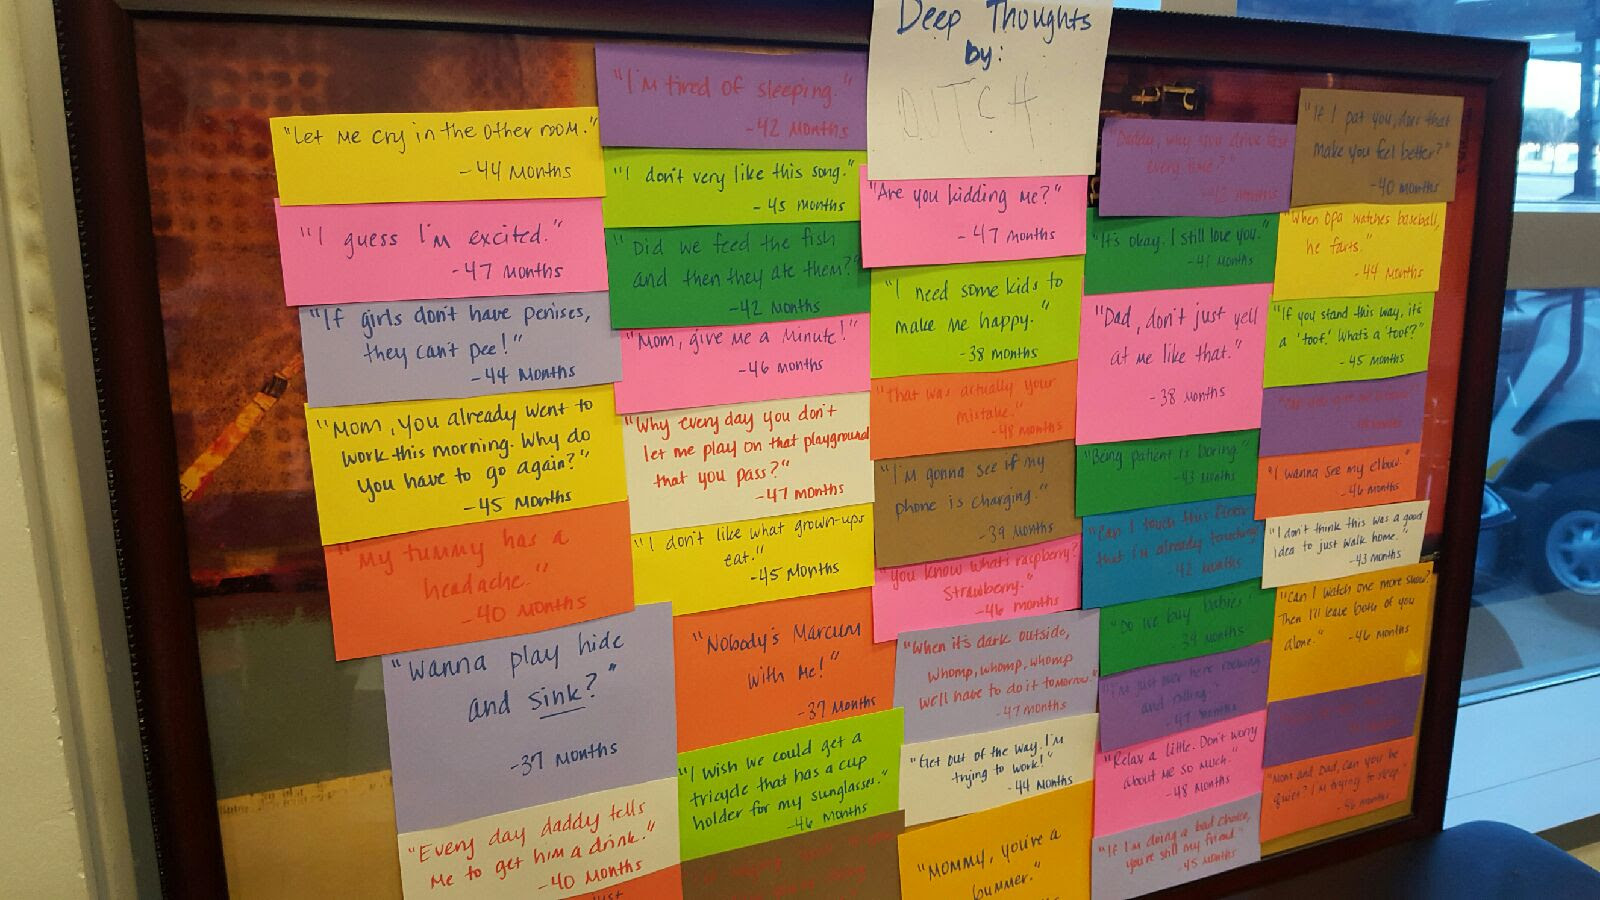 Deep Thoughts
by:
DITCH
"Let me cry in the other room."
-44 Months
"I guess I'm excited."
-47 Months
"If girls don't have penises,
they can't pee!"
-44 Months
"Mom, you already went to
work this morning. Why do
you have to go again?"
-45 Months
"My tummy has a
headache."
-40 Months
"Wanna play hide
and sink?"
-37 Months
"Every day daddy tells
me to get him a drink."
-40 Months
"I'm tired of sleeping."
-42 Months
"I don't very like this song."
-45 Months
"Did we feed the fish
and then they ate them?"
-42 Months
"Mom, give me a minute!"
-46 Months
"Why every day you don't
let me play on that playground
that you pass?"
-47 Months
"I don't like what grown-ups
eat."
-45 Months
"Nobody's Marcum
with me!"
-37 Months
"I wish we could get a
tricycle that has a cup
holder for my sunglasses."
-46 Months
"Are you kidding me?"
-47 Months
"I need some kids to
make me happy."
-38 Months
"That was actually your
mistake."
-48 Months
"I'm gonna see if my
phone is charging."
-39 Months
"You know what's raspberry?
Strawberry."
-46 Months
"When it's dark outside,
whomp, whomp, whomp
we'll have to do it tomorrow."
-47 Months
"Get out of the way. I'm
trying to work!"
-44 Months
"Mommy, you're a
bummer."
"Daddy, why you drive fast
every time?"
-42 Months
"It's okay. I still love you."
-41 Months
"Dad, don't just yell
at me like that."
-38 Months
"Being patient is boring."
-43 Months
"Can I touch this floor
that I'm already touching?"
-42 Months
"Do we buy babies?"
-39 Months
"I'm just over here rocking
and rolling."
-47 Months
"Relax a little. Don't worry
about me so much."
-48 Months
"If I'm doing a bad choice,
you're still my friend."
-45 Months
"If I pat you, does that
make you feel better?"
-40 Months
"When Opa watches baseball,
he farts."
-44 Months
"If you stand this way, it's
a 'toof.' What's a 'toof?'"
-45 Months
"I wanna see my elbow."
-46 Months
"I don't think this was a good
idea to just walk home."
-43 Months
"Can I watch one more show?
Then I'll leave both of you
alone."
-46 Months
"Mom and Dad, can you be
quiet? I'm trying to sleep."
-36 Months